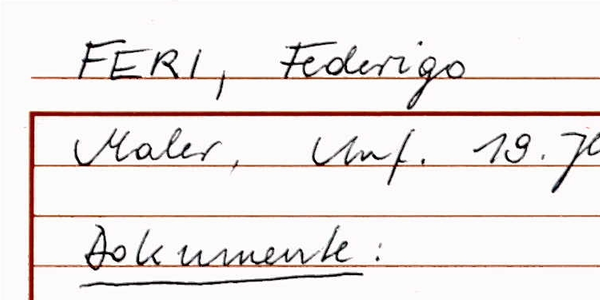 FERI, Federigo
Maler, Anf. 19. Jh
Dokumente: